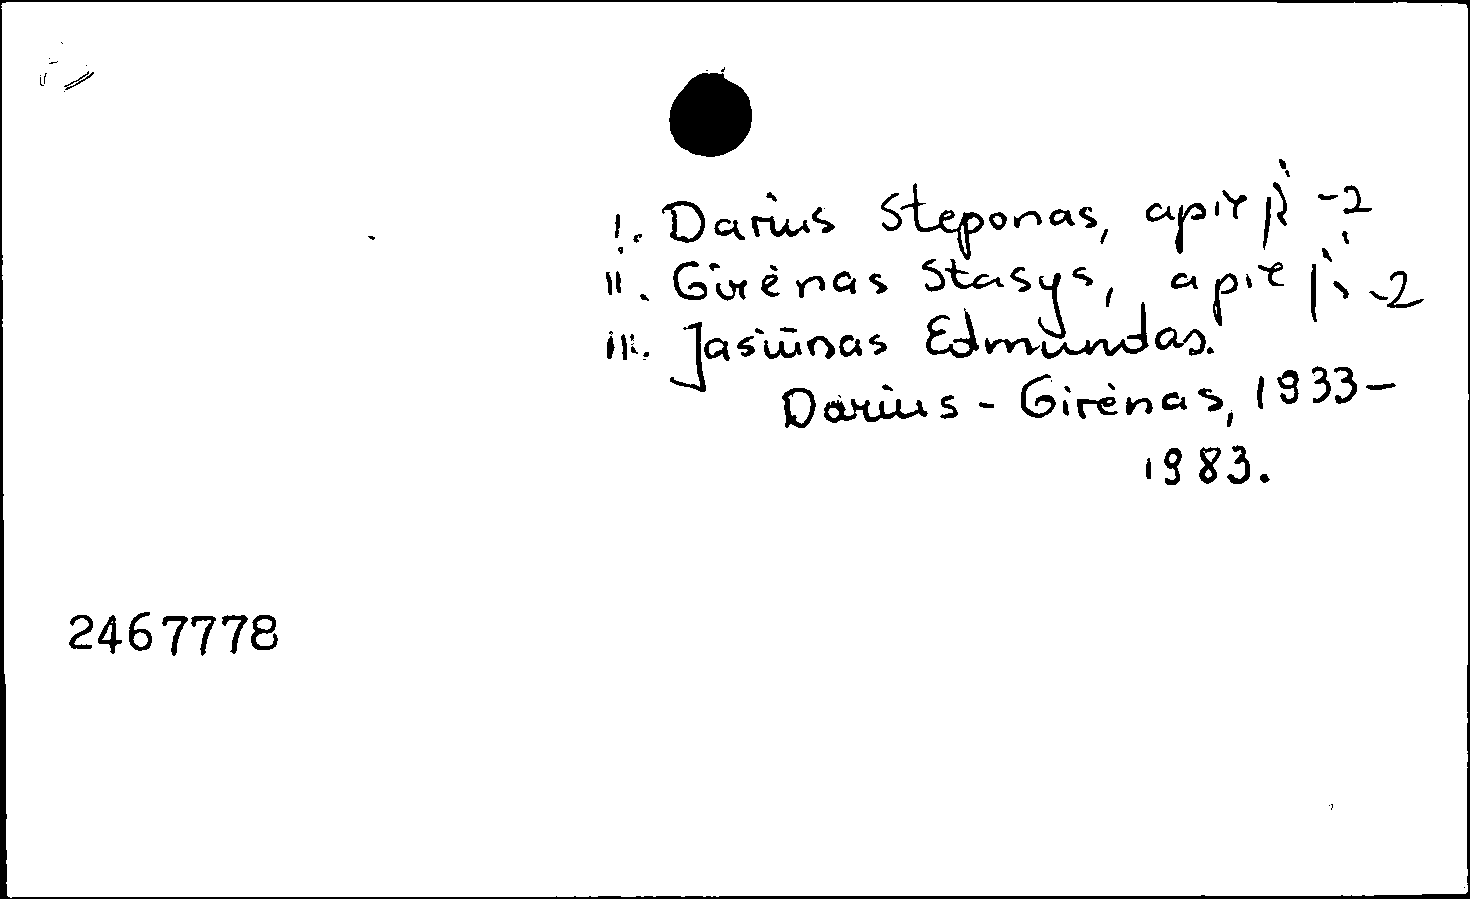 I. Darius Steponas, apie jį -2
II. Girėnas Stasys, apie jį -2
III. Jasiūnas Edmundas.
Darius - Girėnas, 1933-
1983.
2467778